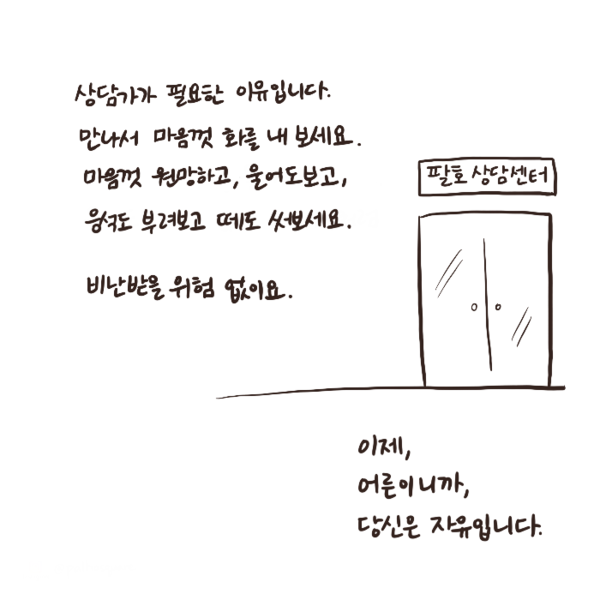 상담가가 필요한 이유입니다.
만나서 마음껏 화를 내 보세요.
마음껏 원망하고, 울어도보고,
응석도 부려보고 떼도 써보세요.
비난받을 위험 없이요.
팔호 상담센터
이제,
어른이니까,
당신은 자유입니다.